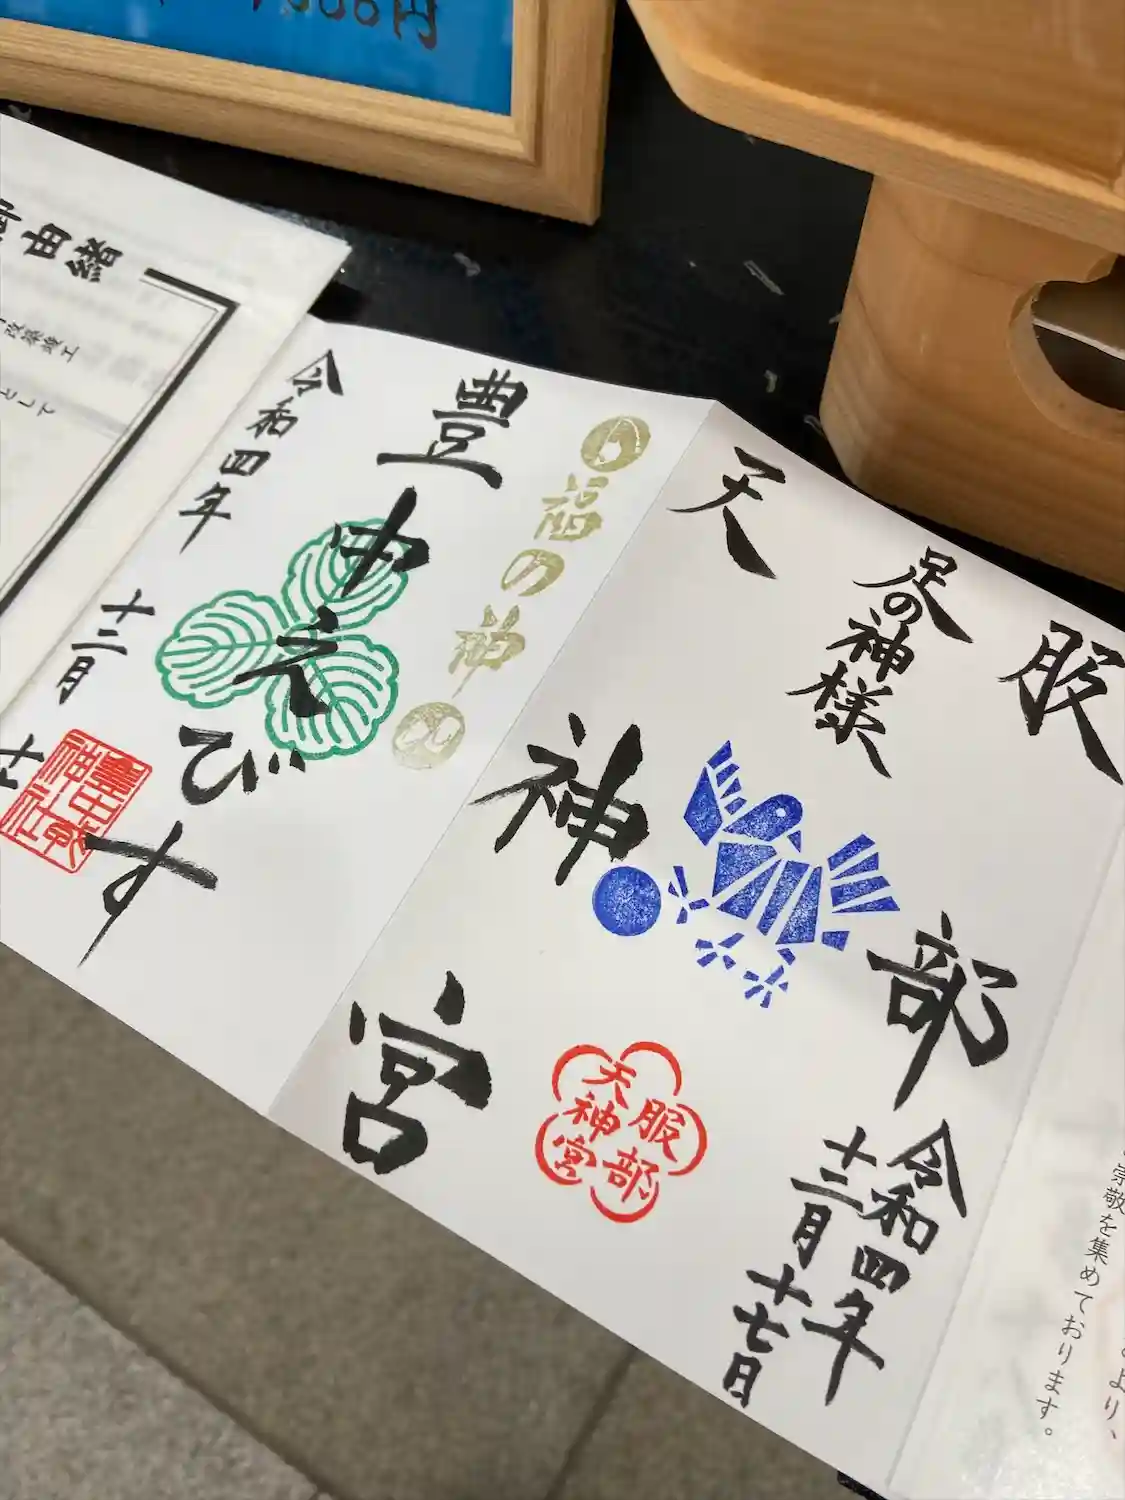 服部
天神宮
足の神様
令和四年
十二月十七日
服部
天神宮
福の神
豊中えびす
令和四年
十二月
由緒
改築竣工
として
円
崇敬を集めております。
より、